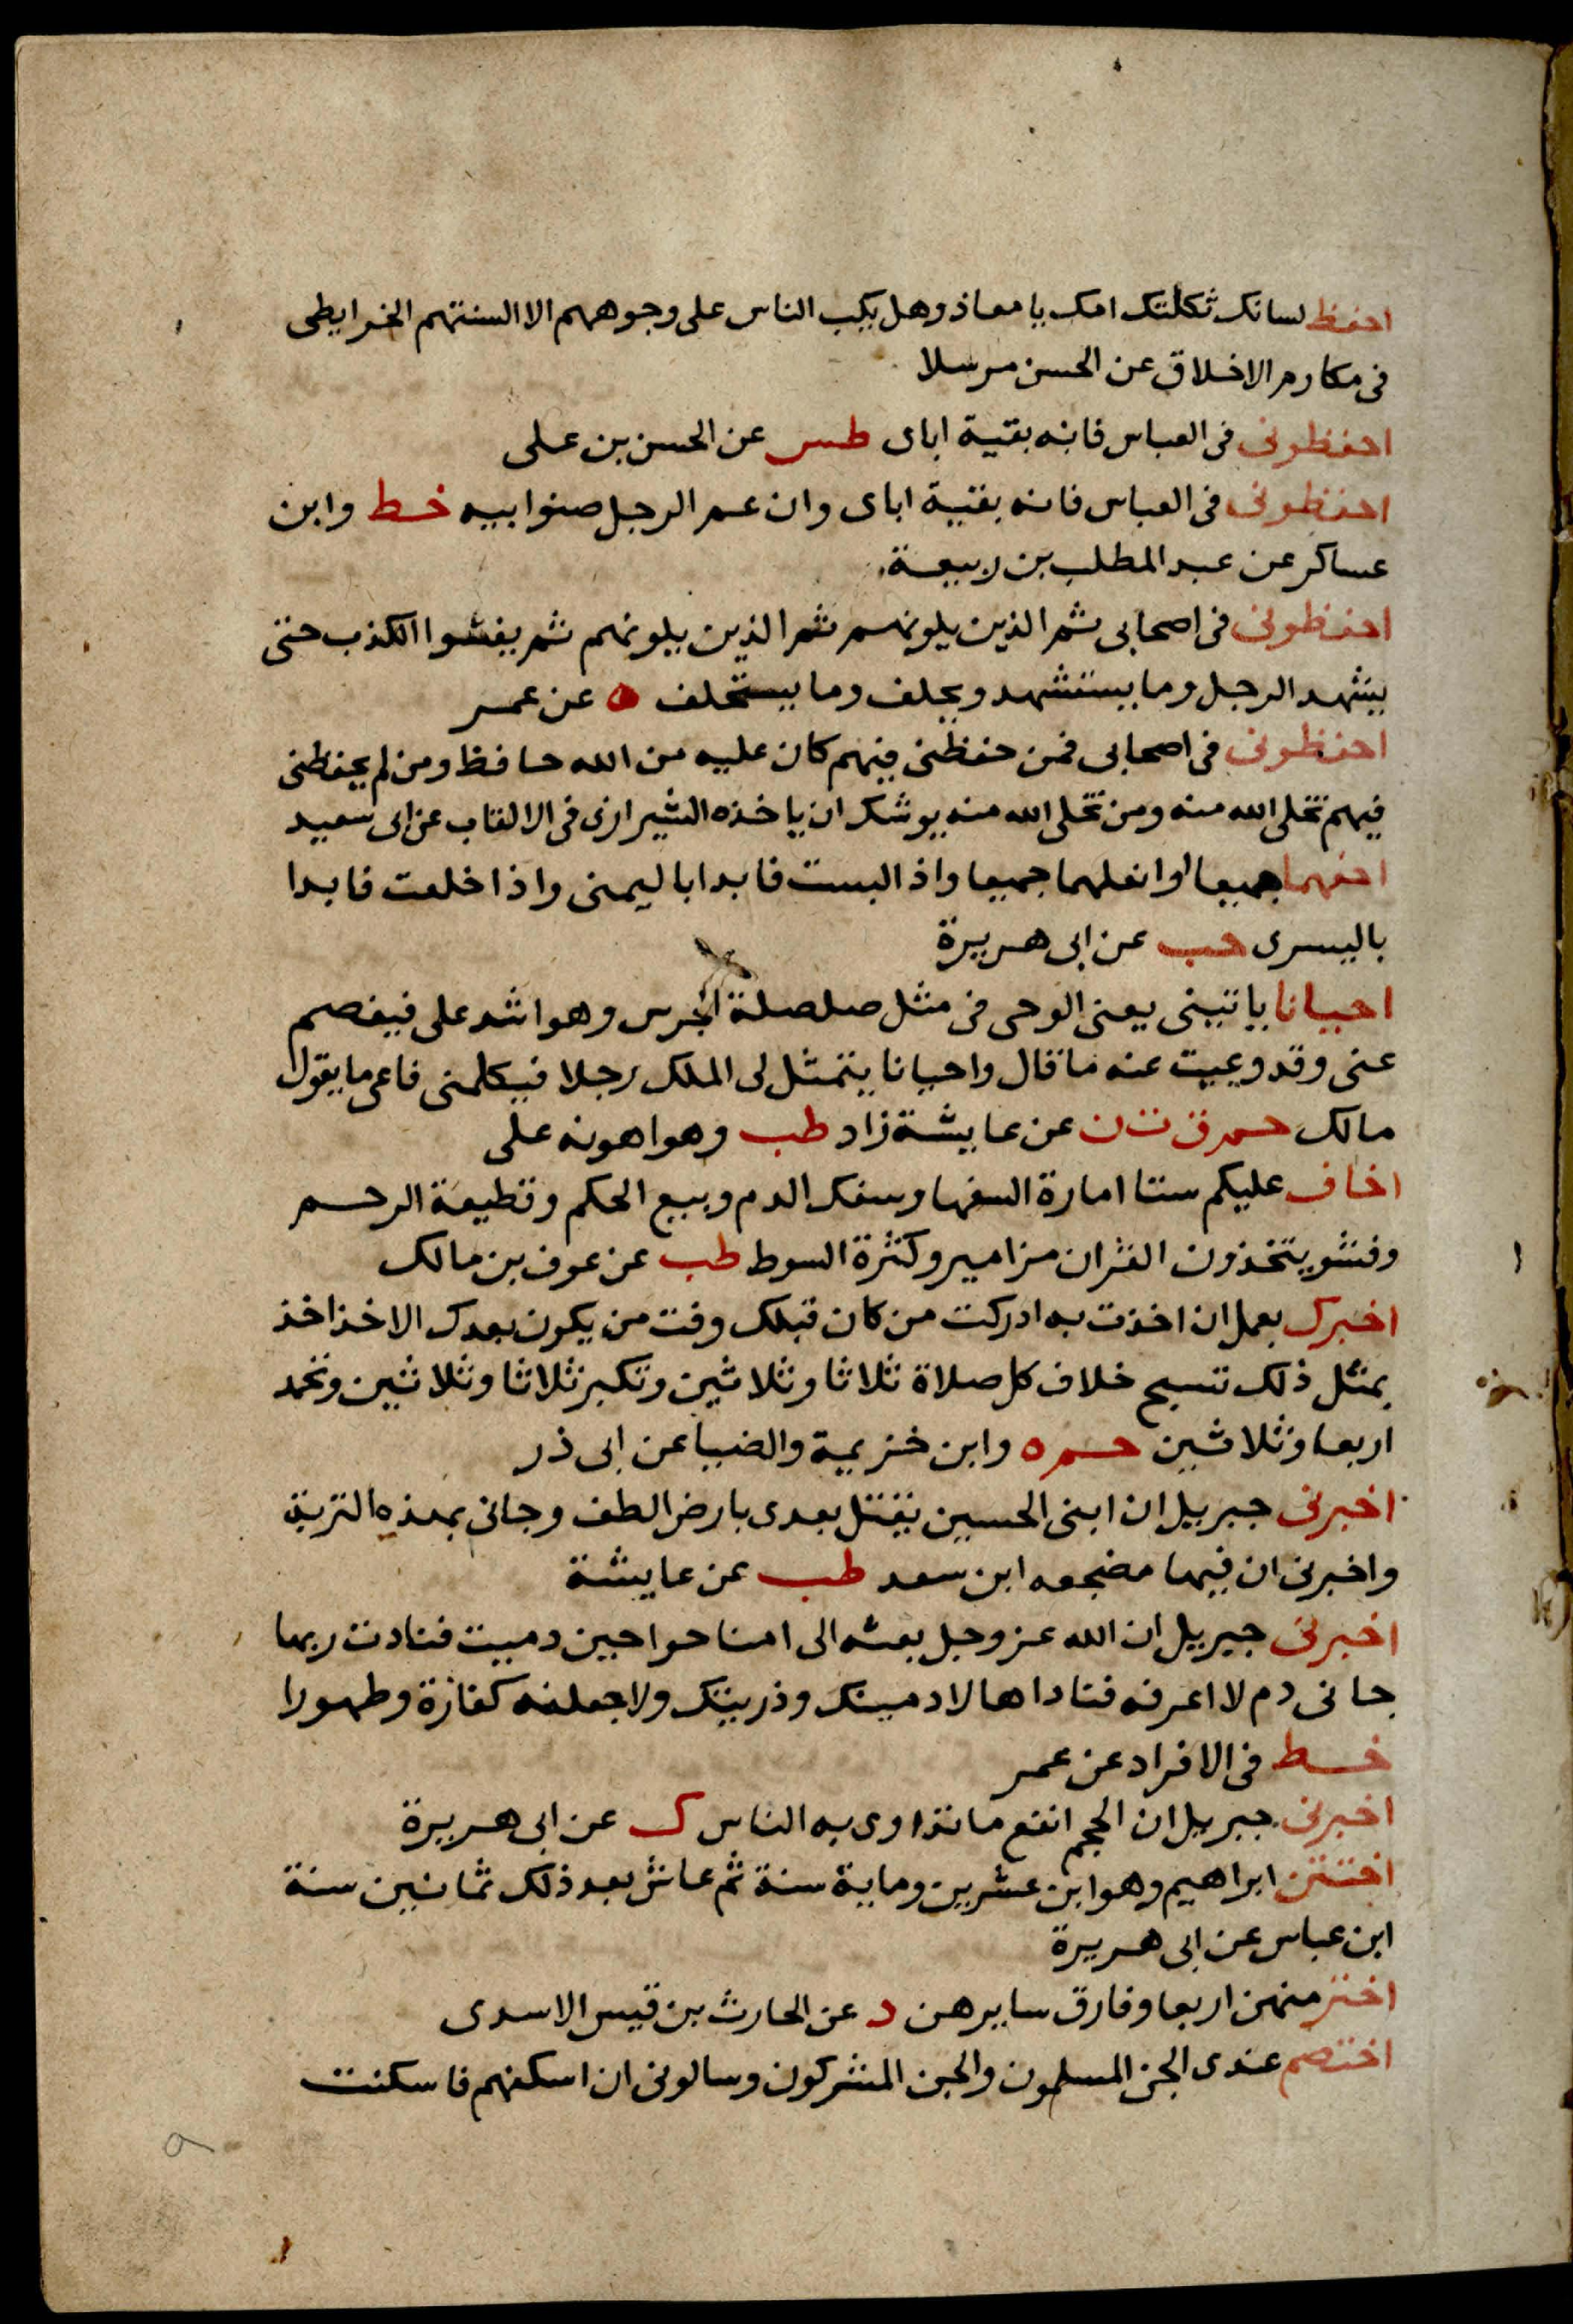 احفظ لسانك ثكلتك امك يا معاذ وهل يكب الناس على وجوههم الا السنتهم الخرايطى
فى مكارم الاخلاق عن الحسن مرسلا
احفظونى فى العباس فانه بقية اباى طس عن الحسن بن على
احفظونى فى العباس فانه بقية اباى وان عم الرجل صنوابيه خط وابن
عساكر عن عبد المطلب بن ربيعة
احفظونى فى اصحابى ثم الذين يلونهم ثم الذين يلونهم ثم يفشوا الكذب حتى
يشهد الرجل وما يستشهد ويحلف وما يستحلف ه عن عمر
احفظونى فى اصحابى فمن حفظنى فيهم كان عليه من الله حافظ ومن لم يحفظنى
فيهم تخلى الله منه ومن تخلى الله منه يوشك ان ياخذه الشيرازى فى الالقاب عن ابى سعيد
احفهما جميعا اوانعلهما جميعا واذا لبست فابدا باليمنى واذا خلعت فابدا
باليسرى حب عن ابى هريرة
احيانا ياتينى يعنى الوحى فى مثل صلصلة الجرس وهو اشد على فيفصم
عنى وقد وعيت عنه ما قال واحيانا يتمثل لى الملك رجلا فيكلمنى فاعى ما يقول
مالك حم ق ت ن عن عايشة زاد طب وهو اهونه على
اخاف عليكم ستا امارة السفها وسفك الدم وبيع الحكم وقطيعة الرحم
ونشو يتخذون القران مزامير وكثرة السوط طب عن عوف بن مالك
اخبرك بعمل ان اخذت به ادركت من كان قبلك وفت من يكون بعدك الا خذ اخذ
بمثل ذلك تسبح خلاف كل صلاة ثلاثا وثلاثين وتكبر ثلاثا وثلاثين وتحمد
اربعا وثلاثين حم ه وابن خزيمة والضيا عن ابى ذر
اخبرنى جبريل ان ابنى الحسين يقتل بعدى بارض الطف وجانى بهذه التربة
واخبرنى ان فيها مضجعه ابن سعد طب عن عايشة
اخبرنى جبريل ان الله عز وجل بعثه الى امنا حوا حين دميت فنادت ربها
جانى دم لا اعرفه فناداها لادمينك وذريتك ولاجعلنه كفارة وطهورا
خط فى الافراد عن عمر
اخبرنى جبريل ان الحجم انفع ما تداوى به الناس ك عن ابى هريرة
اختتن ابراهيم وهو ابن عشرين وماية سنة ثم عاش بعد ذلك ثمانين سنة
ابن عباس عن ابى هريرة
اختر منهن اربعا وفارق سايرهن د عن الحارث بن قيس الاسدى
اختصم عندى الجن المسلمون والجن المشركون وسالونى ان اسكنهم فاسكنت